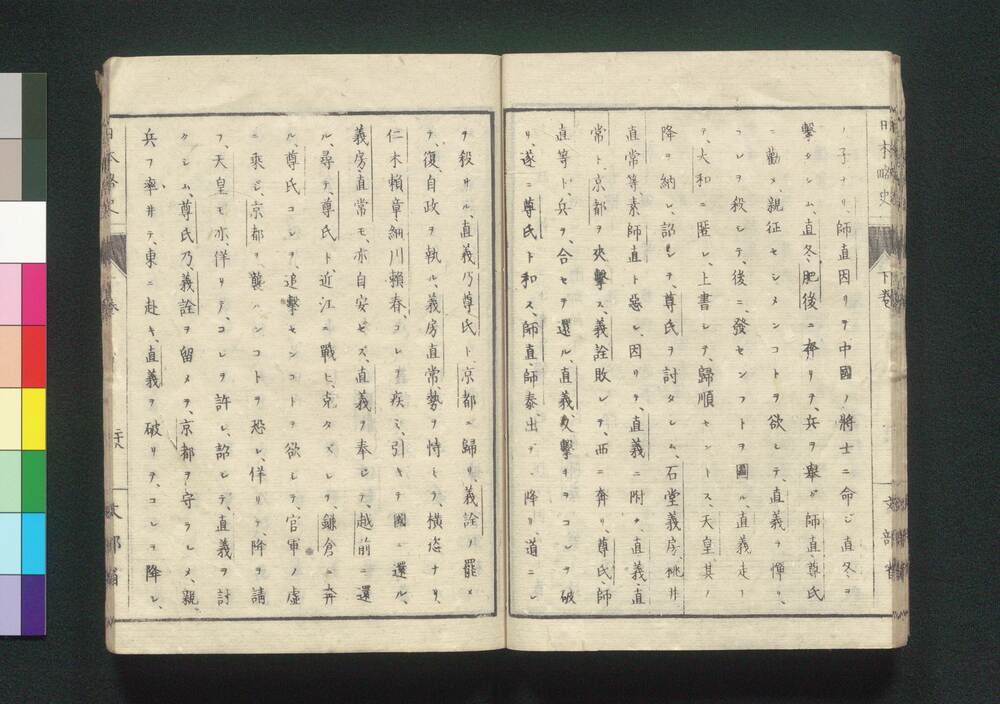 日本略史
下巻
文部省
ノ子ナリ、師直因リテ中國ノ將士ニ命ジ直冬ヲ
撃タシム、直冬、肥後ニ奔リテ、兵ヲ擧グ師直、尊氏
ニ勸メ、親征セシメンコトヲ欲シテ、直義ヲ憚リ、
コレヲ殺シテ、後ニ發セントヲ圖ル、直義走リ
テ、大和ニ匿レ、上書シテ、歸順セントス、天皇其ノ
降ヲ納レ、詔シテ、尊氏ヲ討タシム、石堂義房、桃井
直常等、素師直ト惡シ、因リテ、直義ニ附ク、直義直
常ト、京都ヲ夾撃ス、義詮敗レテ、西ニ奔リ、尊氏師
直等ト、兵ヲ合セテ還ル直義、夂撃キテコレヲ破
リ、遂ニ尊氏ト和ス、師直、師泰出デ降リ、道ニシ
テ殺サル、直義乃尊氏ト、京都ニ歸リ、義詮ノ罷メ
テ、復、自政ヲ執ル、義房直常、勢ヲ恃ミテ、横恣ナリ、
仁木賴章、細川賴春、コレヲ疾ミ、引キテ國ニ還ル、
義房、直常モ、亦自安ゼズ、直義ヲ奉ジテ、越前ニ還
ル、尋テ、尊氏ト、近江ニ戰ヒ、克タズシテ、鎌倉ニ奔
ル、尊氏コレヲ、追撃センコトヲ欲シテ、官軍ノ虚
ニ乘ジ、京都ヲ襲ハンコトヲ恐レ、佯リテ、降ヲ請
フ、天皇モ亦、佯リテ、コレヲ許シ、詔シテ、直義ヲ討
タシム、尊氏乃、義詮ヲ留メテ、京都ヲ守ラシメ、親
兵ヲ率井テ、東ニ赴キ、直義ヲ破リテ、コレヲ降シ、